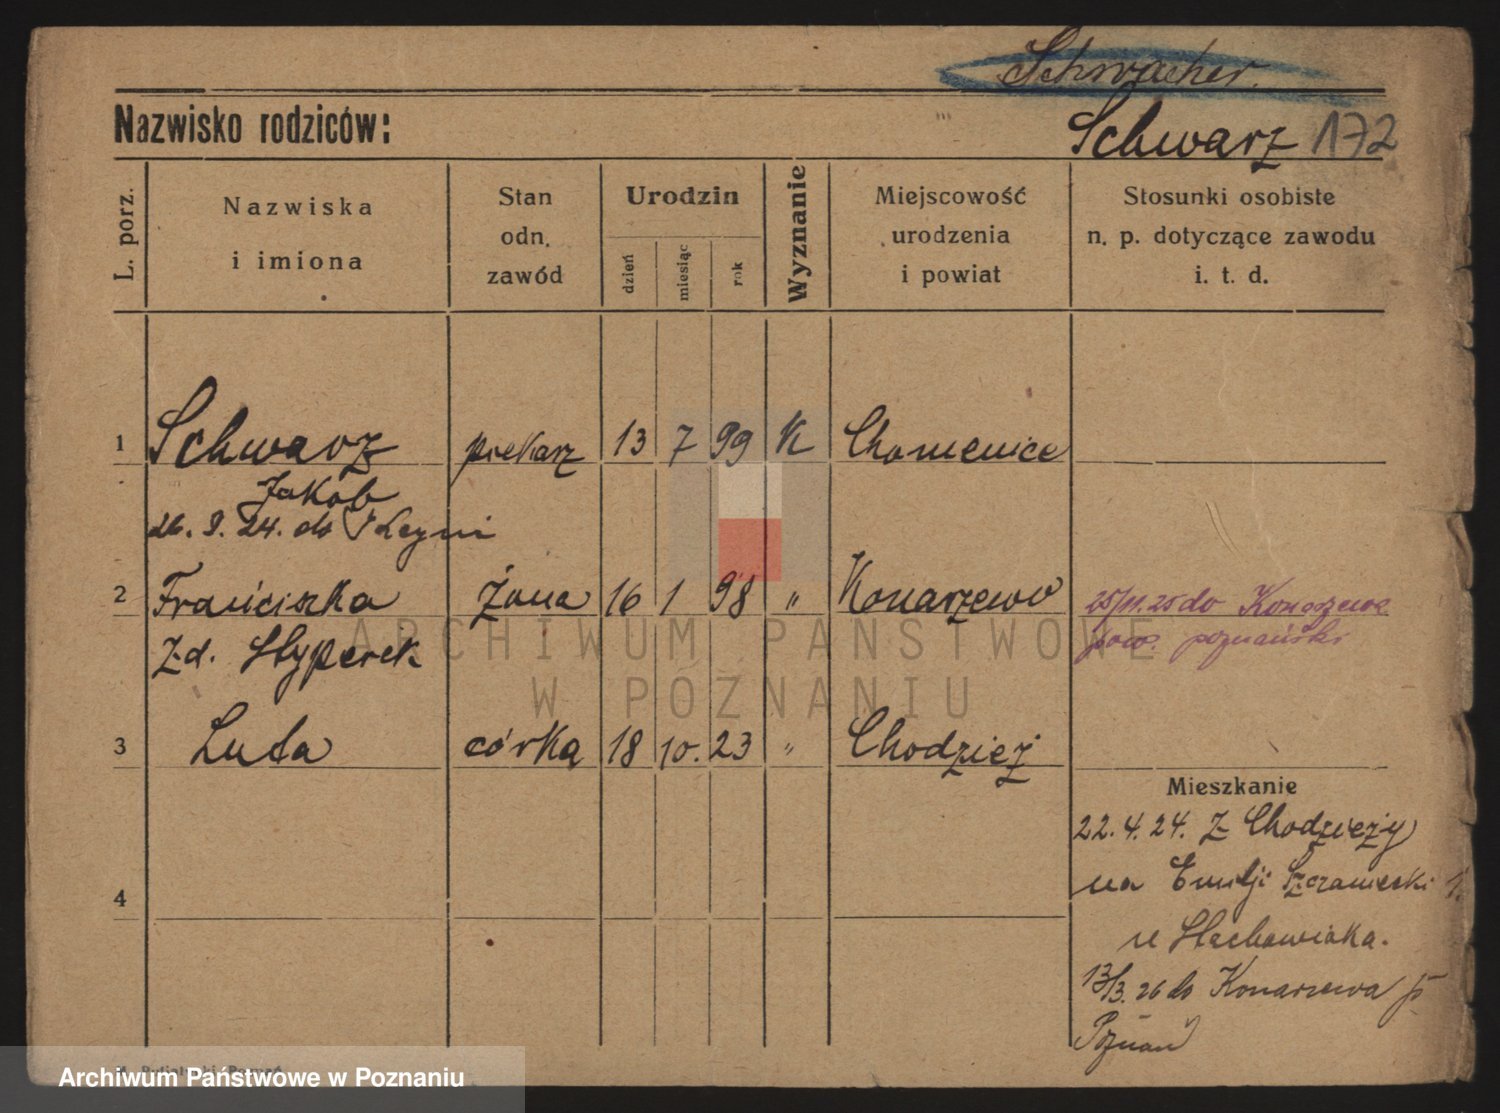 Schwacher.
Nazwisko rodziców: Schwarz 172
L. porz. Nazwiska i imiona Stan odn. zawód Urodzin dzień miesiąc rok Wyznanie Miejscowość urodzenia i powiat Stosunki osobiste n. p. dotyczące zawodu i. t. d.
1 Schwarz piekarz 13 7 99 K Chomenice
Jakób
26. 8. 24. do
2 Franciszka żona 16 1 98 " Konarzewo 25/11.25 do Konarzewa
z d. Styperek pow. poznański
ARCHIWUM PAŃSTWOWE
W POZNANIU
3 Luta córka 18 10. 23 " Chodzież
Mieszkanie
22. 4. 24. z Chodzieży
na Emilji Szczaniecki
4
u Stechowiaka.
13/3. 26 do Konarzewa p.
Poznań
Archiwum Państwowe w Poznaniu